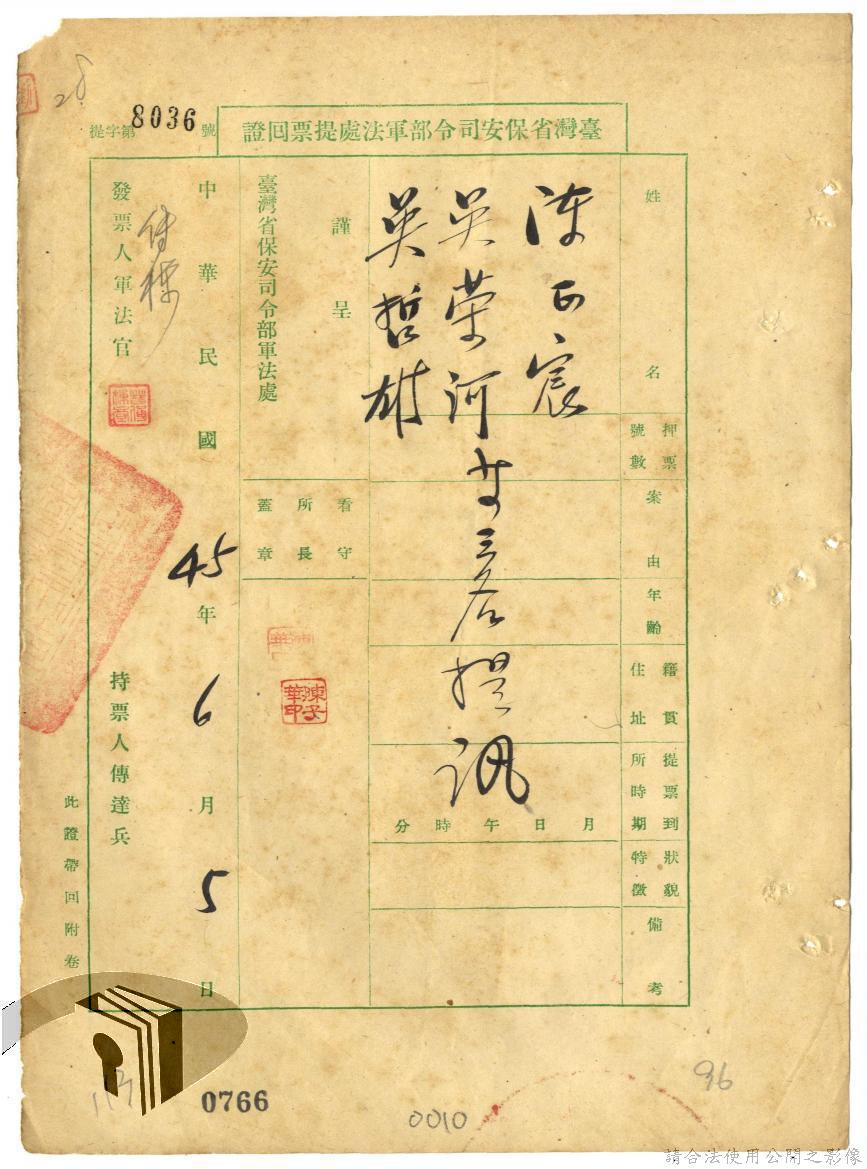 臺灣省保安司令部軍法處提票回證
提字第8036號
28
姓名
押票號數
案由
年齡
籍貫住址
提票到所時期
狀貌特徵
備考
陳正宸
吳榮河等三名提訊
吳哲雄
月 日 午 時 分
謹呈
臺灣省保安司令部軍法處
看守所長蓋章
中華民國45年6月5日
發票人軍法官
持票人傳達兵
此證帶回附卷
0766
0010
96
請合法使用公開之影像